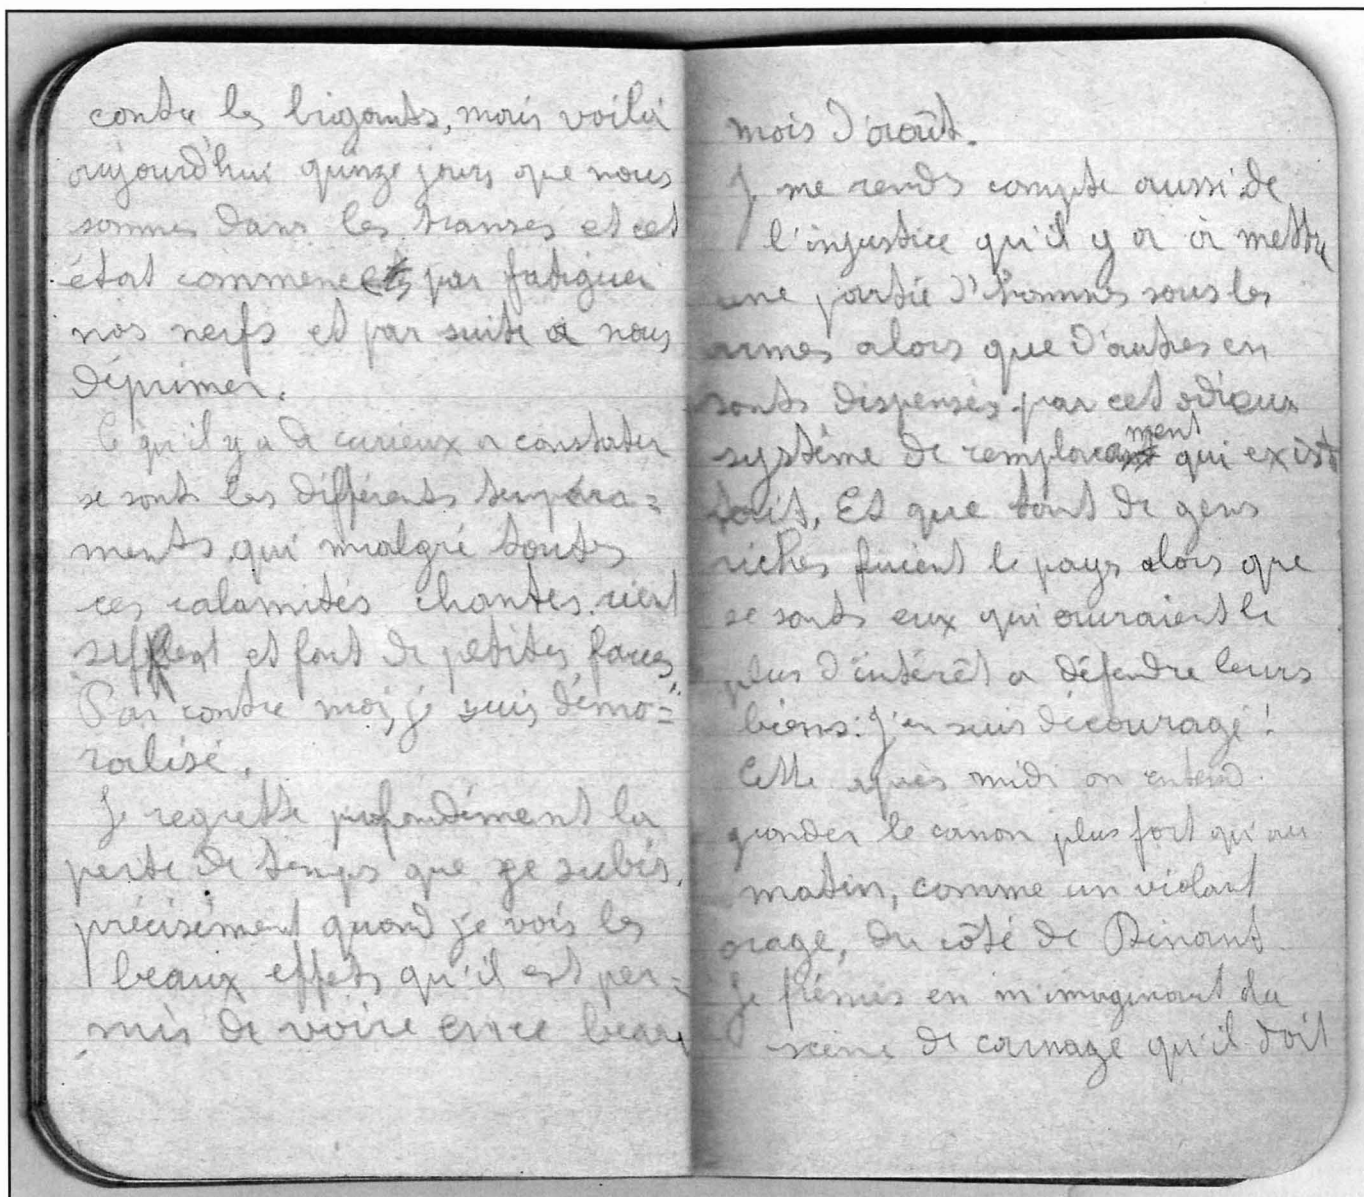 contre les brigants, mais voilà
aujourd'hui quinze jours que nous
sommes dans les transes et cet
état commence par fatiguer
nos nerfs et par suite a nous
déprimer.
Ce qu'il y a de curieux a constater
se sont les différents tempéra=
ments qui malgré toutes
ces calamités chantes rient
sifflent et font de petites farces,
Par contre moi, je suis démo=
ralisé.
Je regrette profondément la
perte de temps que je subis,
précisément quand je vois les
beaux effets qu'il est per=
mis de voire en ce beau
mois d'août.
J me rends compte aussi de
l'injustice qu'il y a à mettre
une partie d'hommes sous les
armes alors que d'autres en
sonts dispensés par cet odieux
système de remplacement qui exis
tait. Et que tant de gens
riches fuient le pays alors que
se sonts eux qui auraient le
plus d'intérêt a défendre leurs
biens. J'en suis découragé!
Cette après midi on entend
gronder le canon plus fort qu'au
matin, comme un violant
orage, du côté de Dinant.
Je frémis en m'imaginant la
scène de carnage qu'il doit